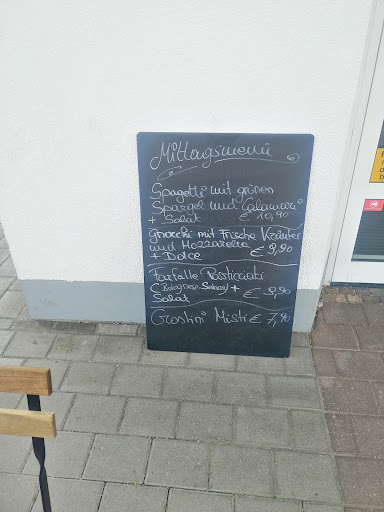 Mittagsmenü
Spagetti mit grünen
Spargel und Calamari
+ Salat € 10,90
Gnocchi mit Frische Kräuter
und Mozzarella € 9,90
+ Dolce
Farfalle Pasticciati
(Bolognese-Sahne) + € 9,90
Salat
Crostini Misti € 7,90